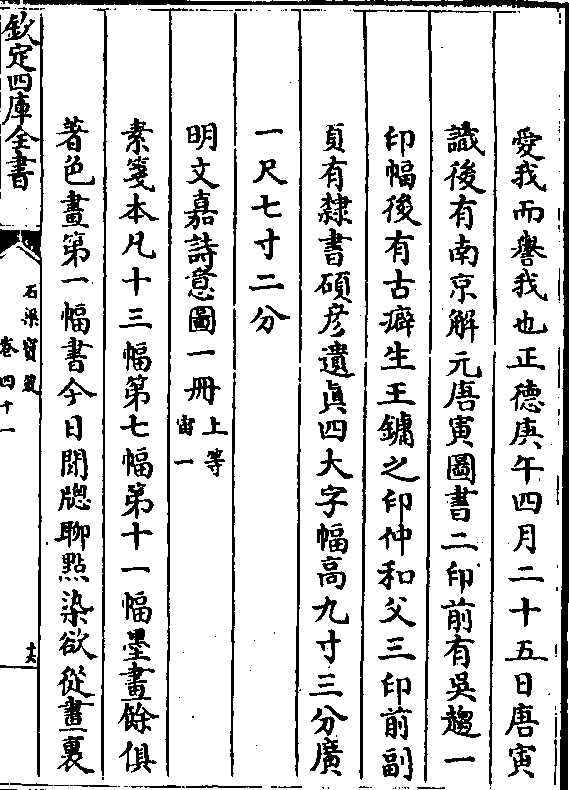 愛我而譽我也正德庚午四月二十五日唐寅
識後有南京解元唐寅圖書二印前有吳趨一
印幅後有古癖生王鏞之印仲和父三印前副
貞有隸書碩彦遺真四大字幅高九寸三分廣
一尺七寸二分
明文嘉詩意圖一冊上等
宙一
素箋本凡十三幅第七幅第十一幅墨畫餘俱
著色畫第一幅書今日閒牕聊點染欲從畫裏
欽定四庫全書
石渠寶笈
卷四十一
十六